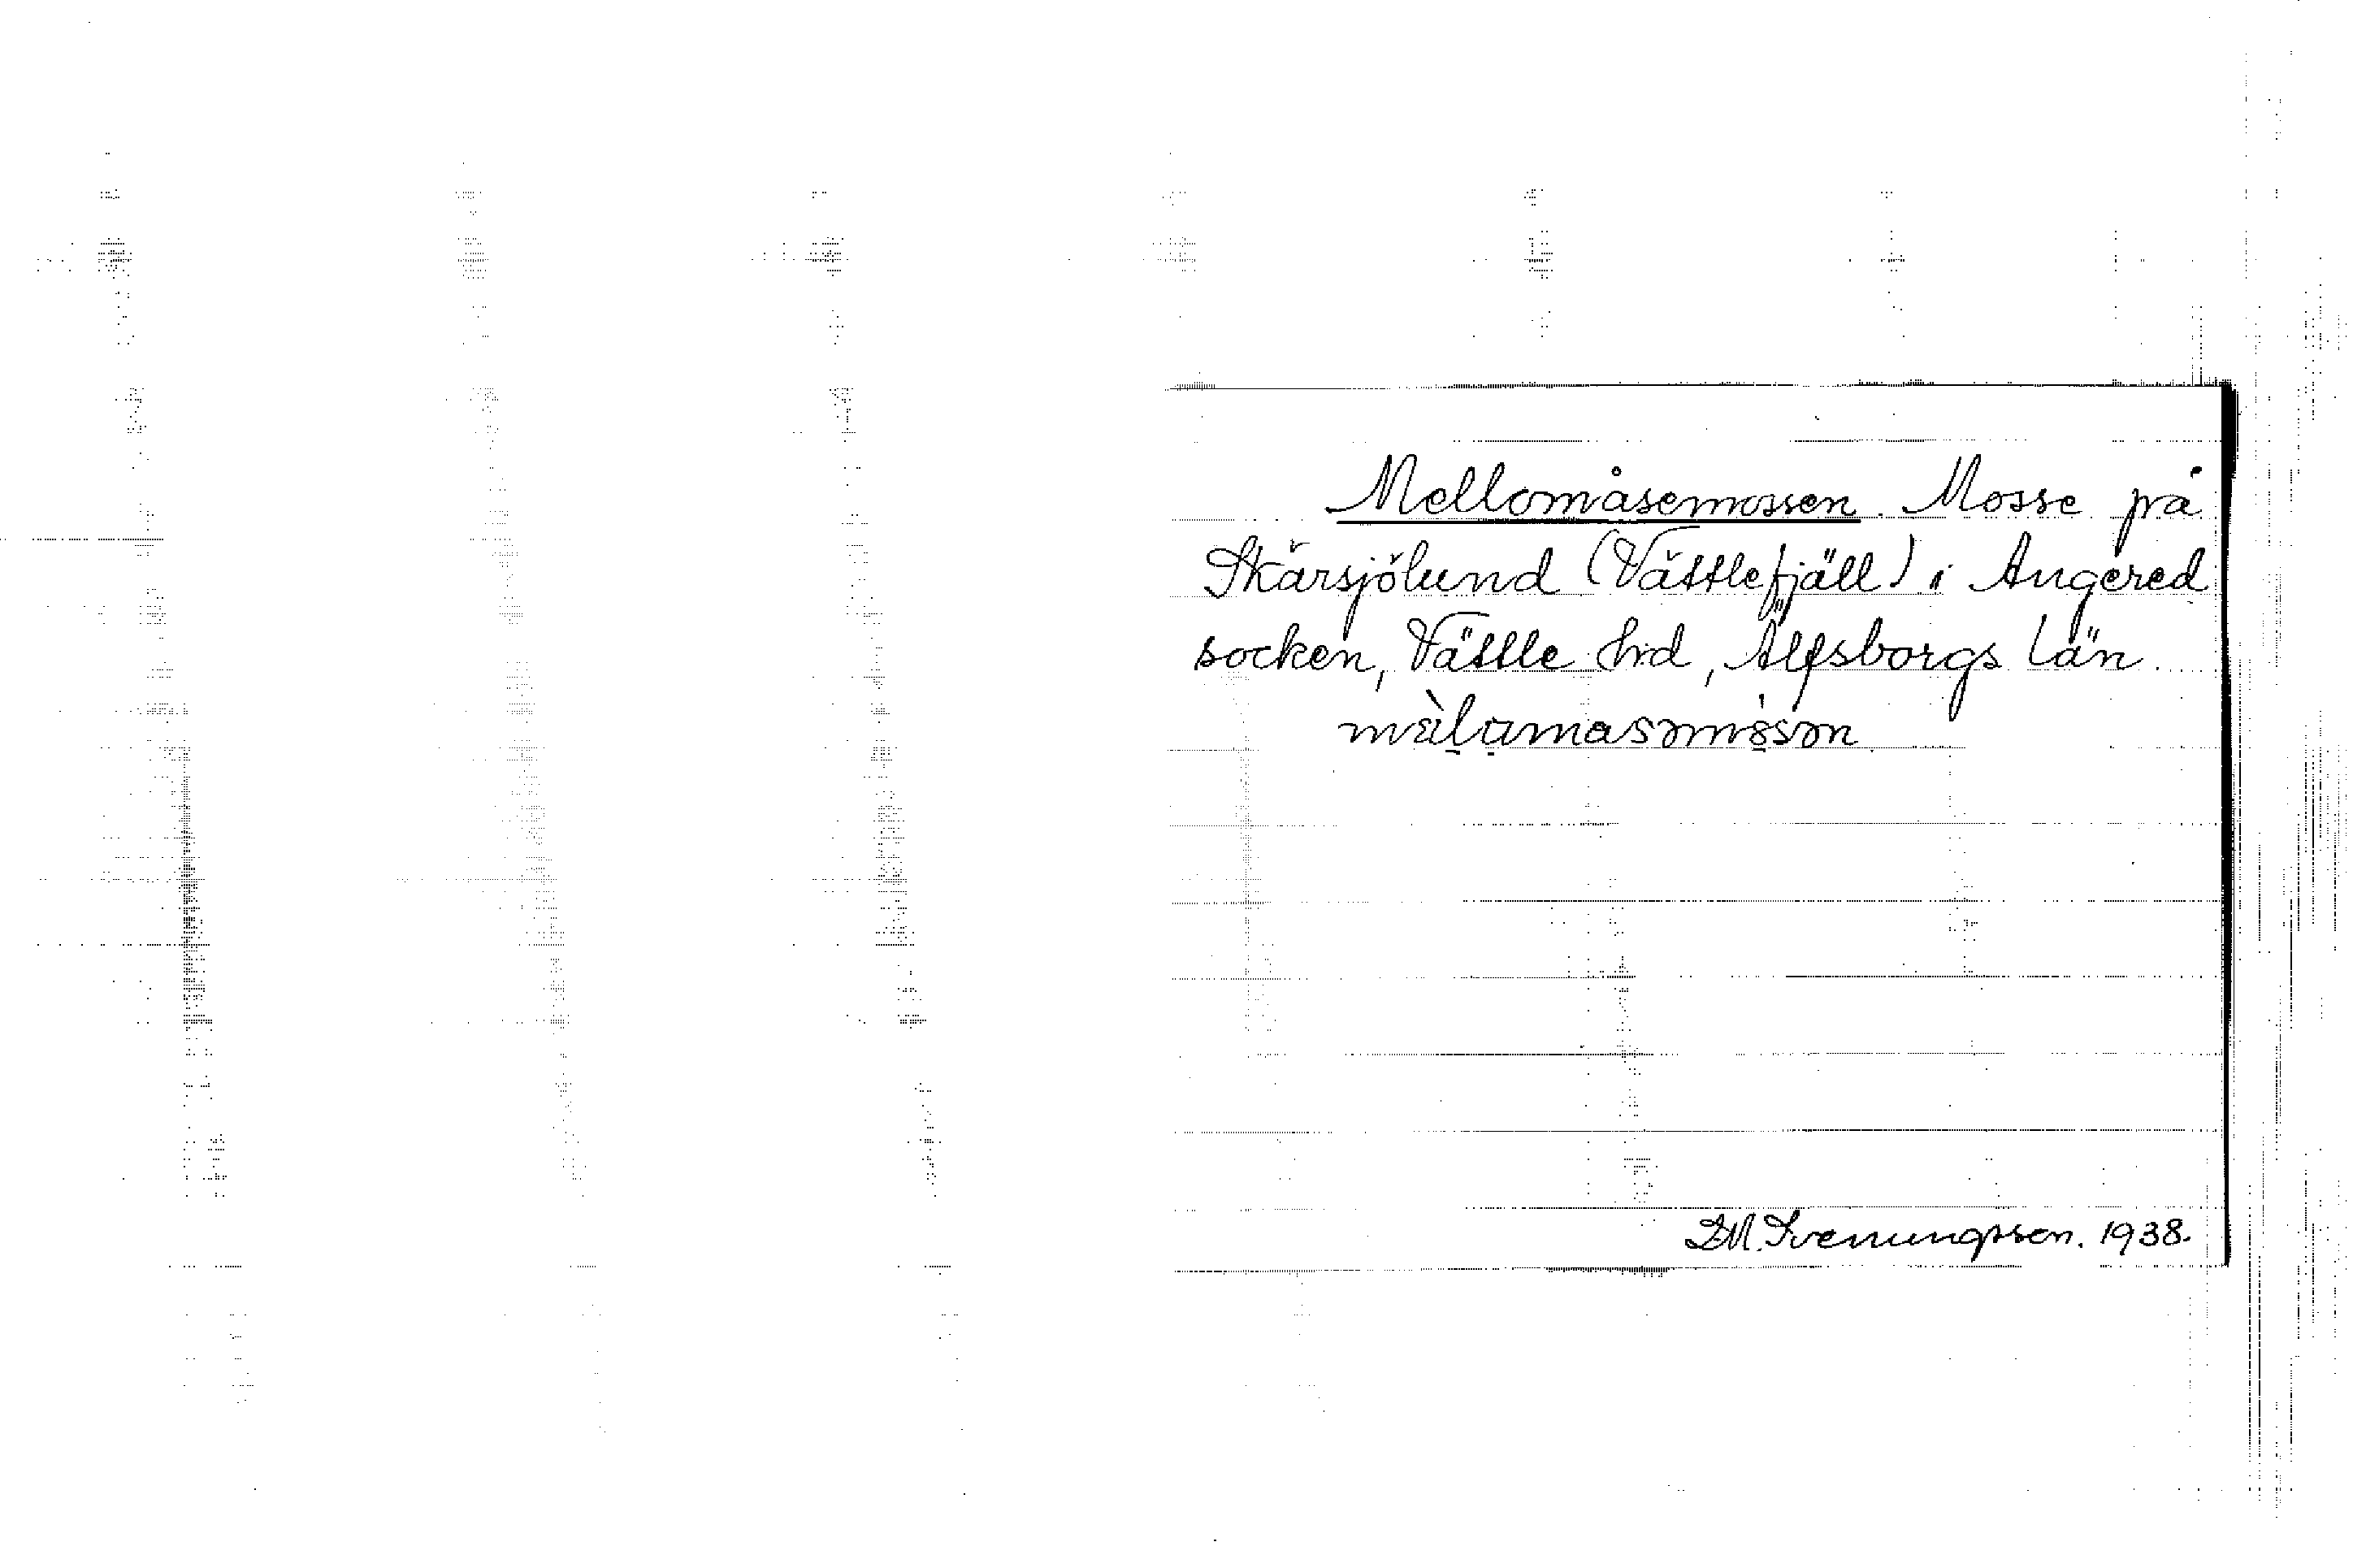 Mellomåsemossen. Mosse på
Skärsjölund (Vättlefjäll) i Angered
socken, Vättle hd, Älfsborgs län.
Svenungsson. 1938.